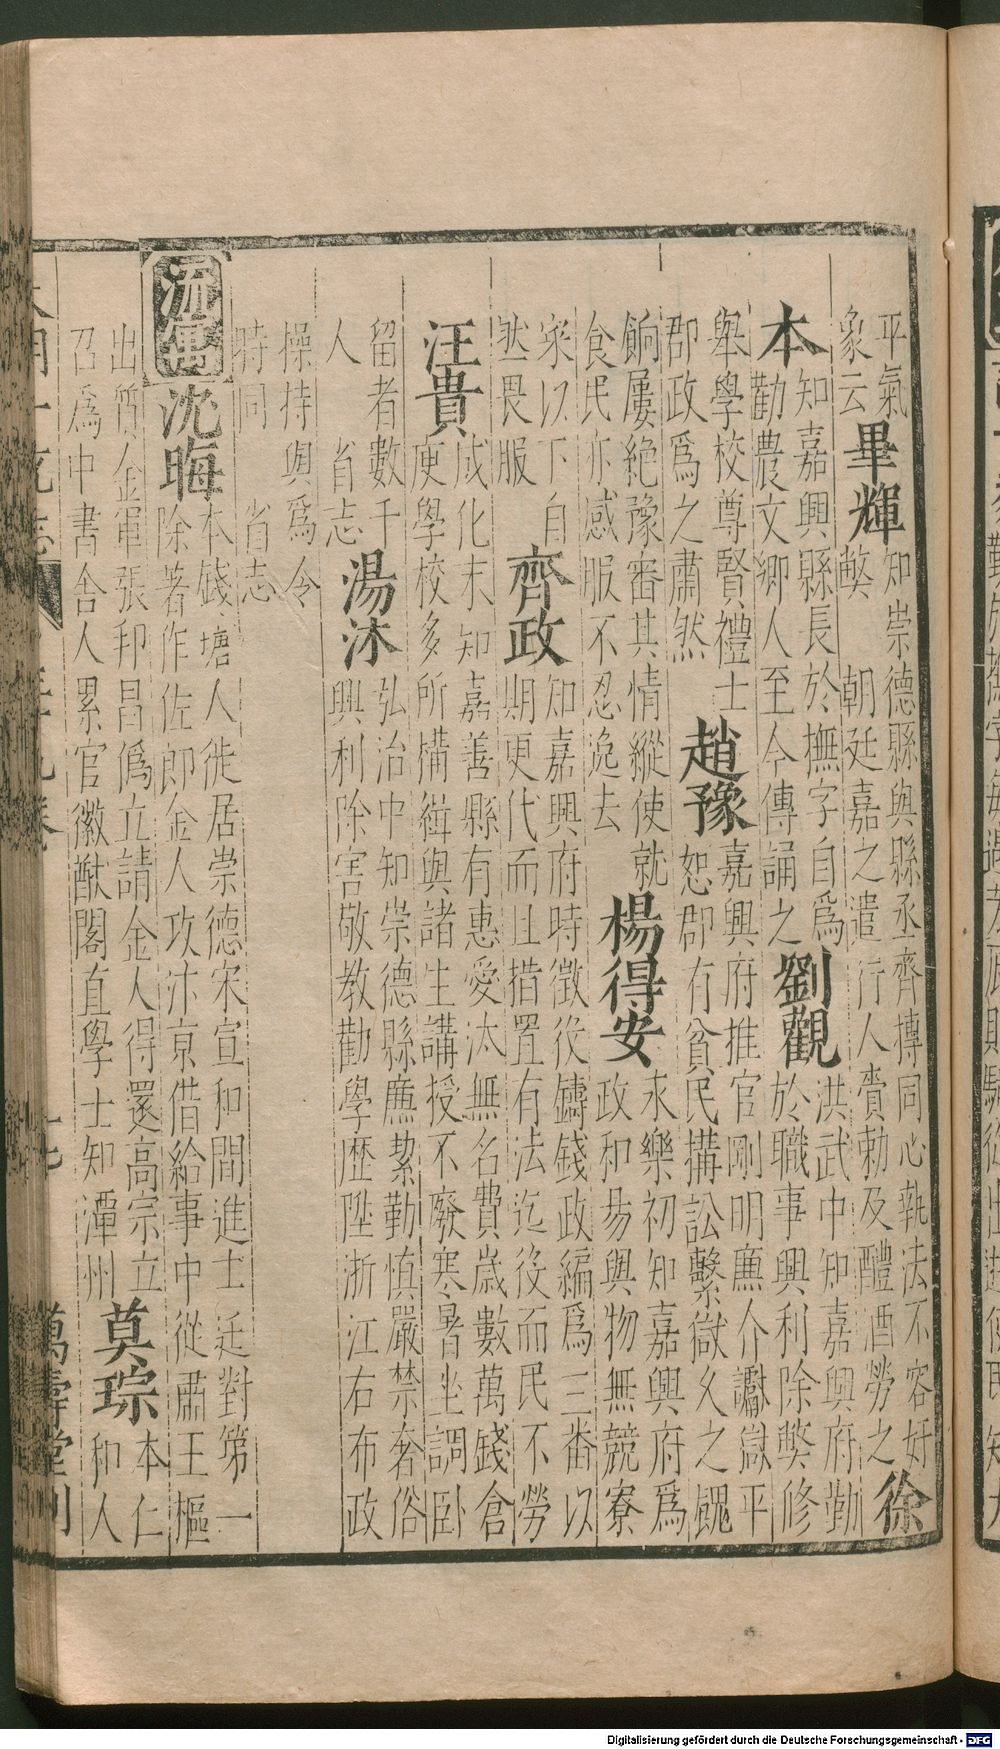 平氣
象云
畢輝
知崇德縣與縣丞齊摶同心執法不容奸
獘　朝廷嘉之遣行人賫勅及醴酒勞之
徐
本
知嘉興縣長於撫字自為
勸農文鄉人至今傳誦之
劉觀
洪武中知嘉興府勤
於職事興利除獘修
舉學校尊賢禮士
郡政爲之肅然
趙豫
嘉興府推官剛明廉介讞獄平
恕郡有貧民搆訟繫獄久之覷
餉屢絕豫審其情縱使就
食民亦感服不忍逸去
楊得安
永樂初知嘉興府爲
政和昜與物無競寮
寀以下自
然畏服
齊政
知嘉興府時徵役鑄錢政編爲三番以
期更代而且措置有法迄役而民不勞
汪貴
成化末知嘉善縣有惠愛汰無名費歲數萬錢倉
庾學校多所構緝與諸生講授不廢寒暑坐調卧
留者數千
人　省志
湯沐
弘治中知崇德縣廉潔勤慎嚴禁奢俗
興利除害敬教勸學歷陞浙江右布政
操持與爲令
時同　省志
流寓
沈晦
本錢塘人徙居崇德宋宣和間進士廷對第一
除著作佐郎金人攻汴京借給事中從肅王樞
出質金軍張邦昌僞立請金人得還高宗立
召爲中書舍人累官徽猷閣直學士知潭州
莫琮
本仁
和人
萬壽堂刊